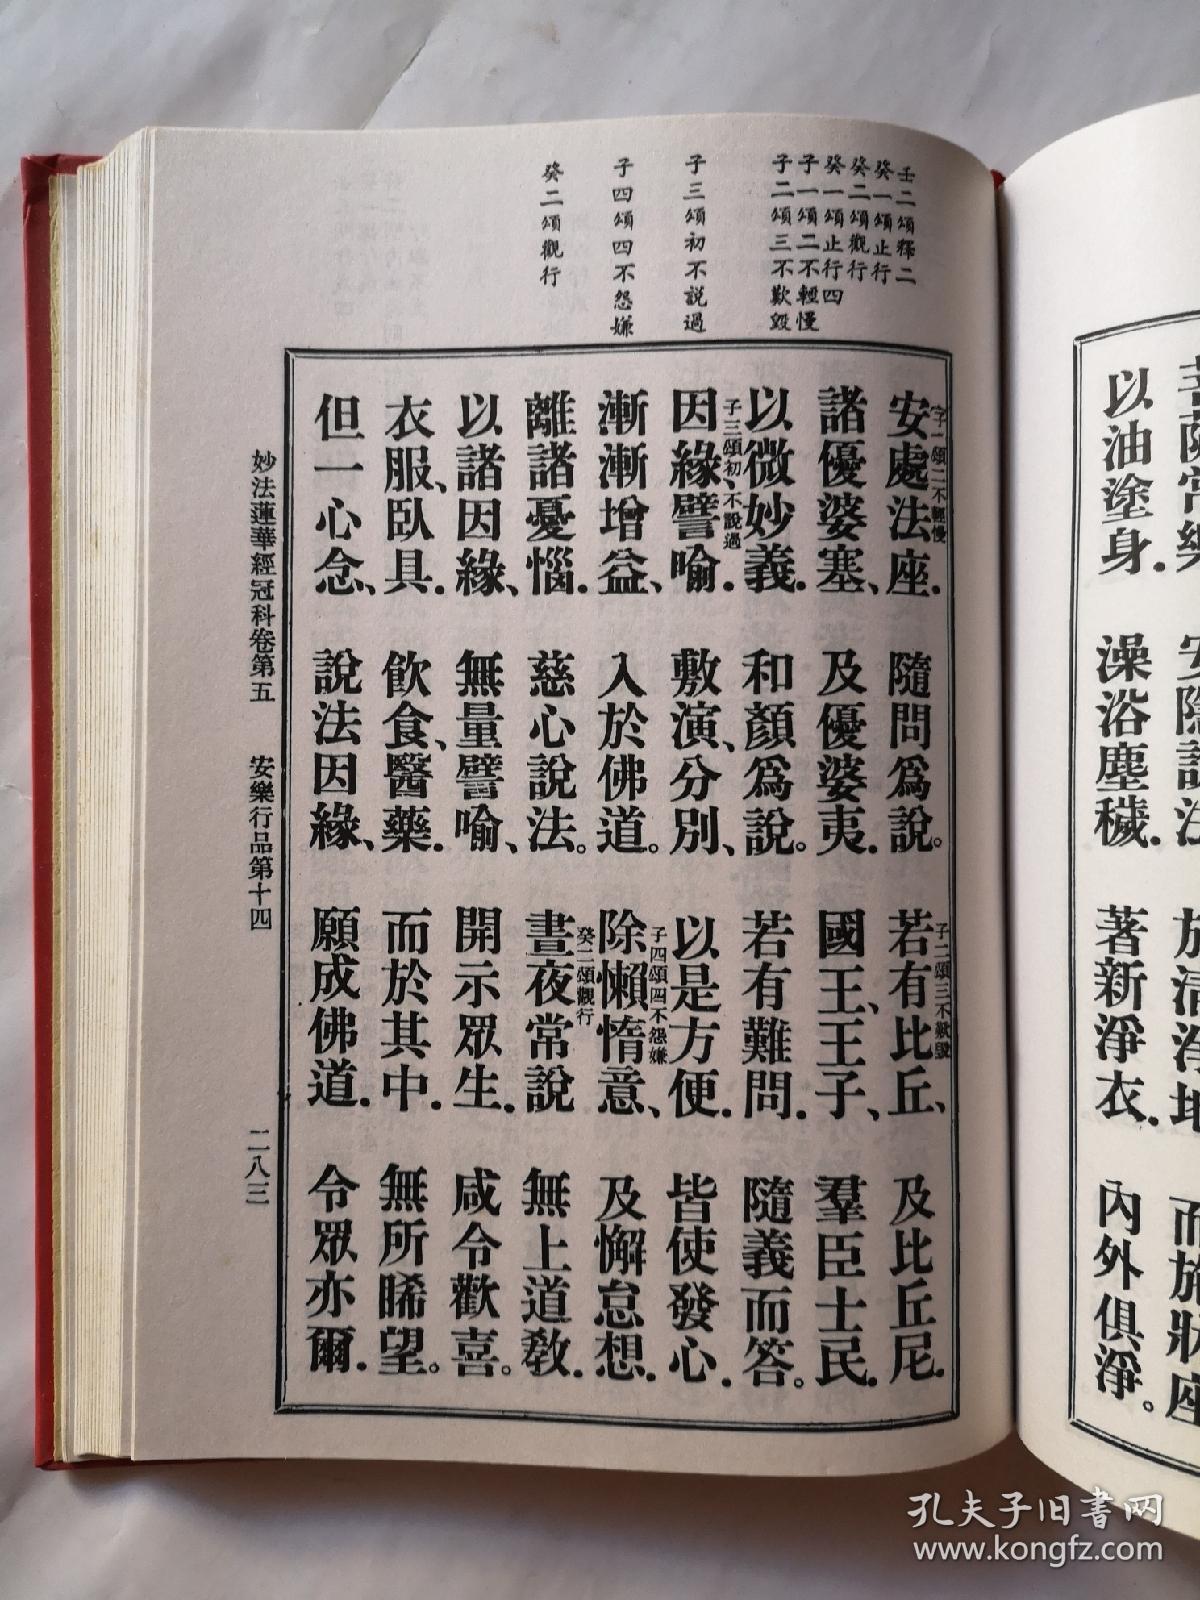 菩薩常樂　安隱說法　於清淨地　而施牀座
以油塗身．　澡浴塵穢．　著新淨衣．　內外俱淨。
壬二頌釋二
癸一頌止行
癸二頌觀行
癸一頌止行四
子一頌二不輕慢
子二頌三不歎毀
子三頌初不說過
子四頌四不怨嫌
癸二頌觀行
子一頌二不輕慢
安處法座．　隨問爲說。
子二頌三不歎毀
若有比丘、　及比丘尼．
諸優婆塞、　及優婆夷．　國王、王子、　羣臣士民．
以微妙義．　和顏爲說。　若有難問．　隨義而答。
子三頌初、不說過
因緣譬喻．　敷演、分別、　以是方便．　皆使發心．
漸漸增益、　入於佛道。
子四頌四不怨嫌
除懶惰意、　及懈怠想．
離諸憂惱．　慈心說法。
癸二頌觀行
晝夜常說　無上道教．
以諸因緣、　無量譬喻、　開示眾生．　咸令歡喜。
衣服、臥具．　飲食、醫藥．　而於其中．　無所晞望。
但一心念、　說法因緣、　願成佛道．　令眾亦爾．
妙法蓮華經冠科卷第五　安樂行品第十四　二八三
孔夫子旧书网
www.kongfz.com